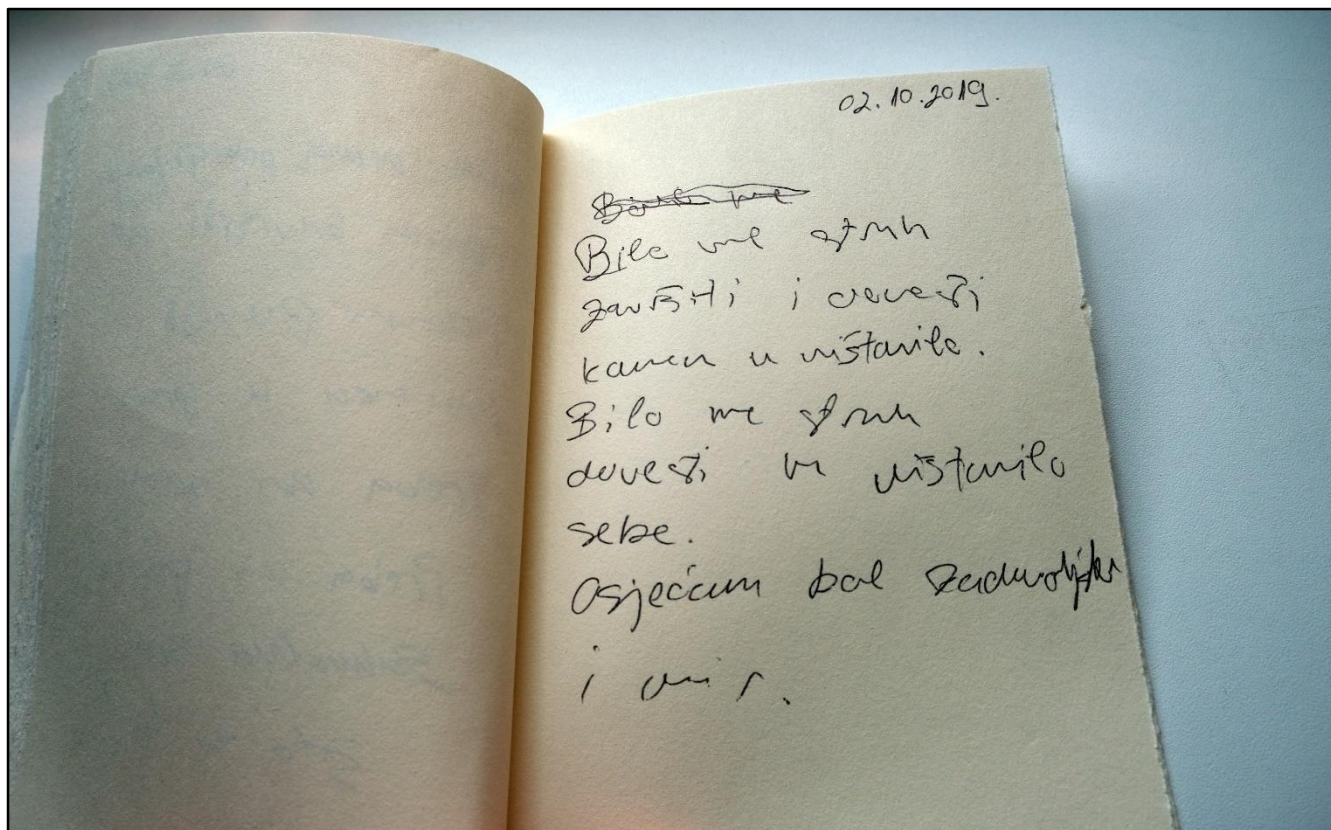 02.10.2019.
Bilo me strah
završiti i dovesti
kamen u ništavilo.
Bilo me strah
dovesti u ništavilo
sebe.
Osjećam bol zadovoljstva
i mir.